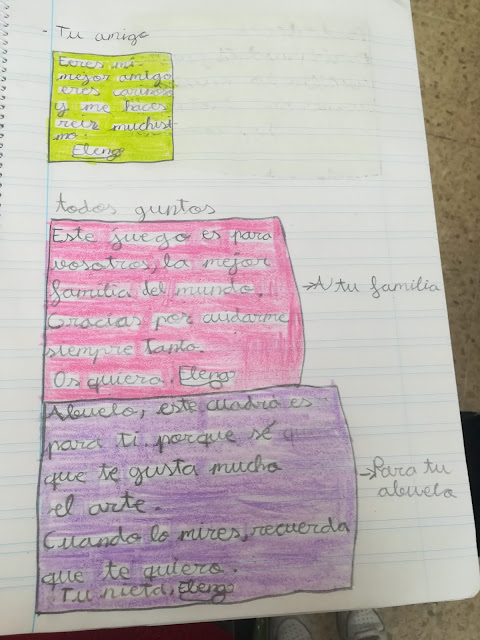 - Tu amigo
Eeres mi
mejor amigo
eres cariñoso
y me haces
reír muchisi-
mo.
Eleng
todos guntos
Este juego es para
vosotros, la mejor
familia del mundo.
Gracias por audarme
siempre tanto.
Os quiero. Eleng
→A tu familia
Abuelo, este cuadro es
para ti porque sé
que te gusta mucho
el arte.
Cuando lo mires, recuerda
que te quiero.
Tu nieta, Eleng
→Para tu
abuelo